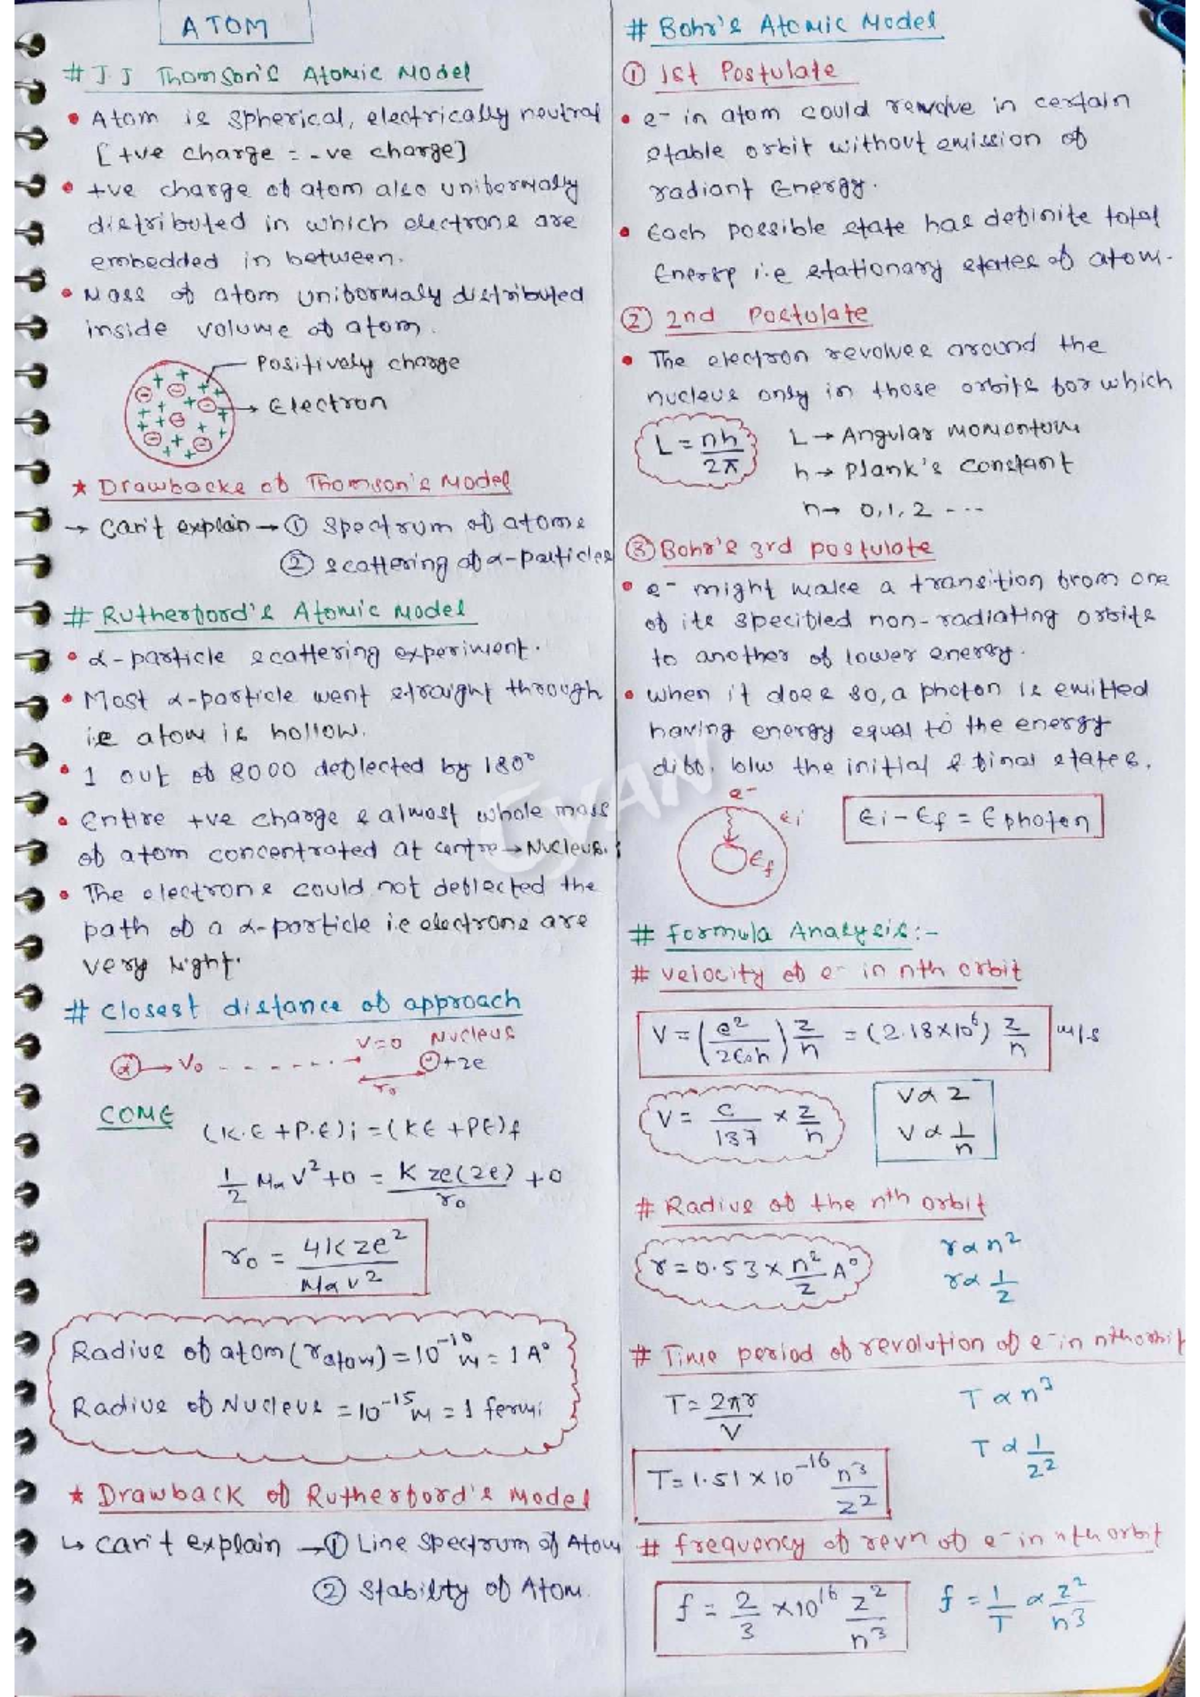 ATOM
# J J Thomson's Atomic Model
• Atom is spherical, electrically neutral
[+ve charge = -ve charge]
• +ve charge of atom also uniformally
distributed in which electrons are
embedded in between.
• Mass of atom uniformaly distributed
inside volume of atom.
Positively charge
Electron
★ Drawbacks of Thomson's Model
→ Can't explain → ① Spectrum of atoms
② scattering of α-particles
# Rutherford's Atomic Model
• α-particle scattering experiment.
• Most α-particle went straight through
i.e atom is hollow.
• 1 out of 8000 deflected by 180°
• Entire +ve charge & almost whole mass
of atom concentrated at centre → Nucleus.
• The electrons could not deflected the
path of a α-particle i.e electrons are
very light.
# Closest distance of approach
α → V₀ - - - - - - V=0 Nucleus
r₀ +ze
COME
(K.E + P.E)i = (KE + PE)f
1/2 Mα V² + 0 = K ze(2e)/r₀ + 0
r₀ = 4Kze²/Mαv²
Radius of atom (r atom) = 10⁻¹⁰ m = 1 A°
Radius of Nucleus = 10⁻¹⁵ m = 1 fermi
★ Drawback of Rutherford's Model
↳ can't explain → ① Line Spectrum of Atom
② Stability of Atom.
# Bohr's Atomic Model
① 1st Postulate
• e⁻ in atom could revolve in certain
stable orbit without emission of
radiant Energy.
• Each possible state has definite total
Energy i.e stationary states of atom.
② 2nd Postulate
• The electron revolves around the
nucleus only in those orbits for which
L = nh/2π
L → Angular momentum
h → Plank's constant
n → 0,1,2 ---
③ Bohr's 3rd postulate
• e⁻ might make a transition from one
of its specified non-radiating orbits
to another of lower energy.
• When it does so, a photon is emitted
having energy equal to the energy
diff. b/w the initial & final states.
e⁻
Ei
Ef
Ei - Ef = E photon
# Formula Analysis:-
# Velocity of e⁻ in nth orbit
V = (e²/2ε₀h) z/n = (2.18×10⁶) z/n m/s
V = c/137 × z/n
V α z
V α 1/n
# Radius of the nth orbit
r = 0.53 × n²/z A°
r α n²
r α 1/z
# Time period of revolution of e⁻ in nth orbit
T = 2πr/V
T α n³
T α 1/z²
T = 1.51 × 10⁻¹⁶ n³/z²
# frequency of revn of e⁻ in nth orbit
f = 2/3 × 10¹⁶ z²/n³
f = 1/T α z²/n³
GYAN